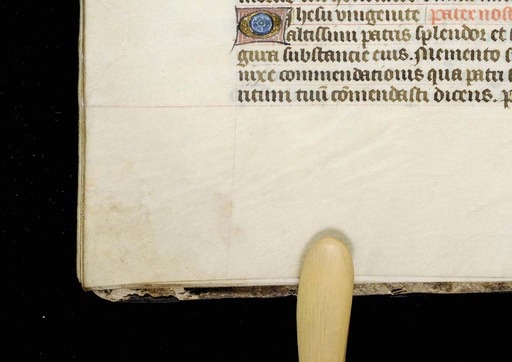 O Ihesu unigenite pater nost
altissimi patris splendor et
gura substancie eius. Memento
nixe commendationis qua patri
ritum tuū cōmendasti dicens. p